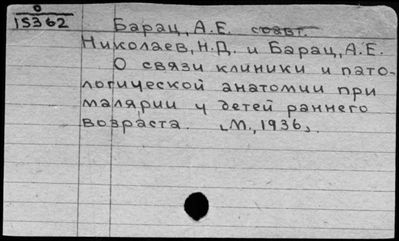 О
15362
Барац, А.Е. соавт.
Николаев, Н.Д. и Барац, А.Е.
О связи клиники и пато-
логической анатомии при
малярии у детей раннего
возраста. [М., 1936].